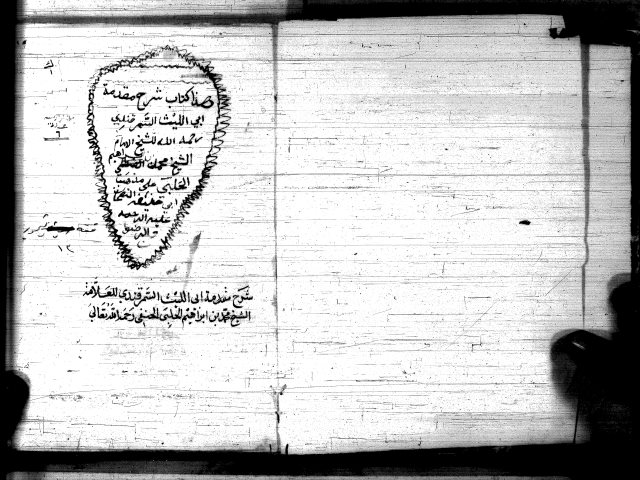 هذا كتاب شرح مقدمة
ابي الليث السمرقندي
رحمه الله للشيخ الامام
الشيخ محمد بن ابراهيم
الحلبي على مذهب
ابي حنيفة النعمان
عليه الرحمة
والرضوان
شرح مقدمة ابى الليث السمرقندي للعلامة
الشيخ محمد بن ابراهيم الحلبي الحنفى رحمه الله تعالى
٦
١٢